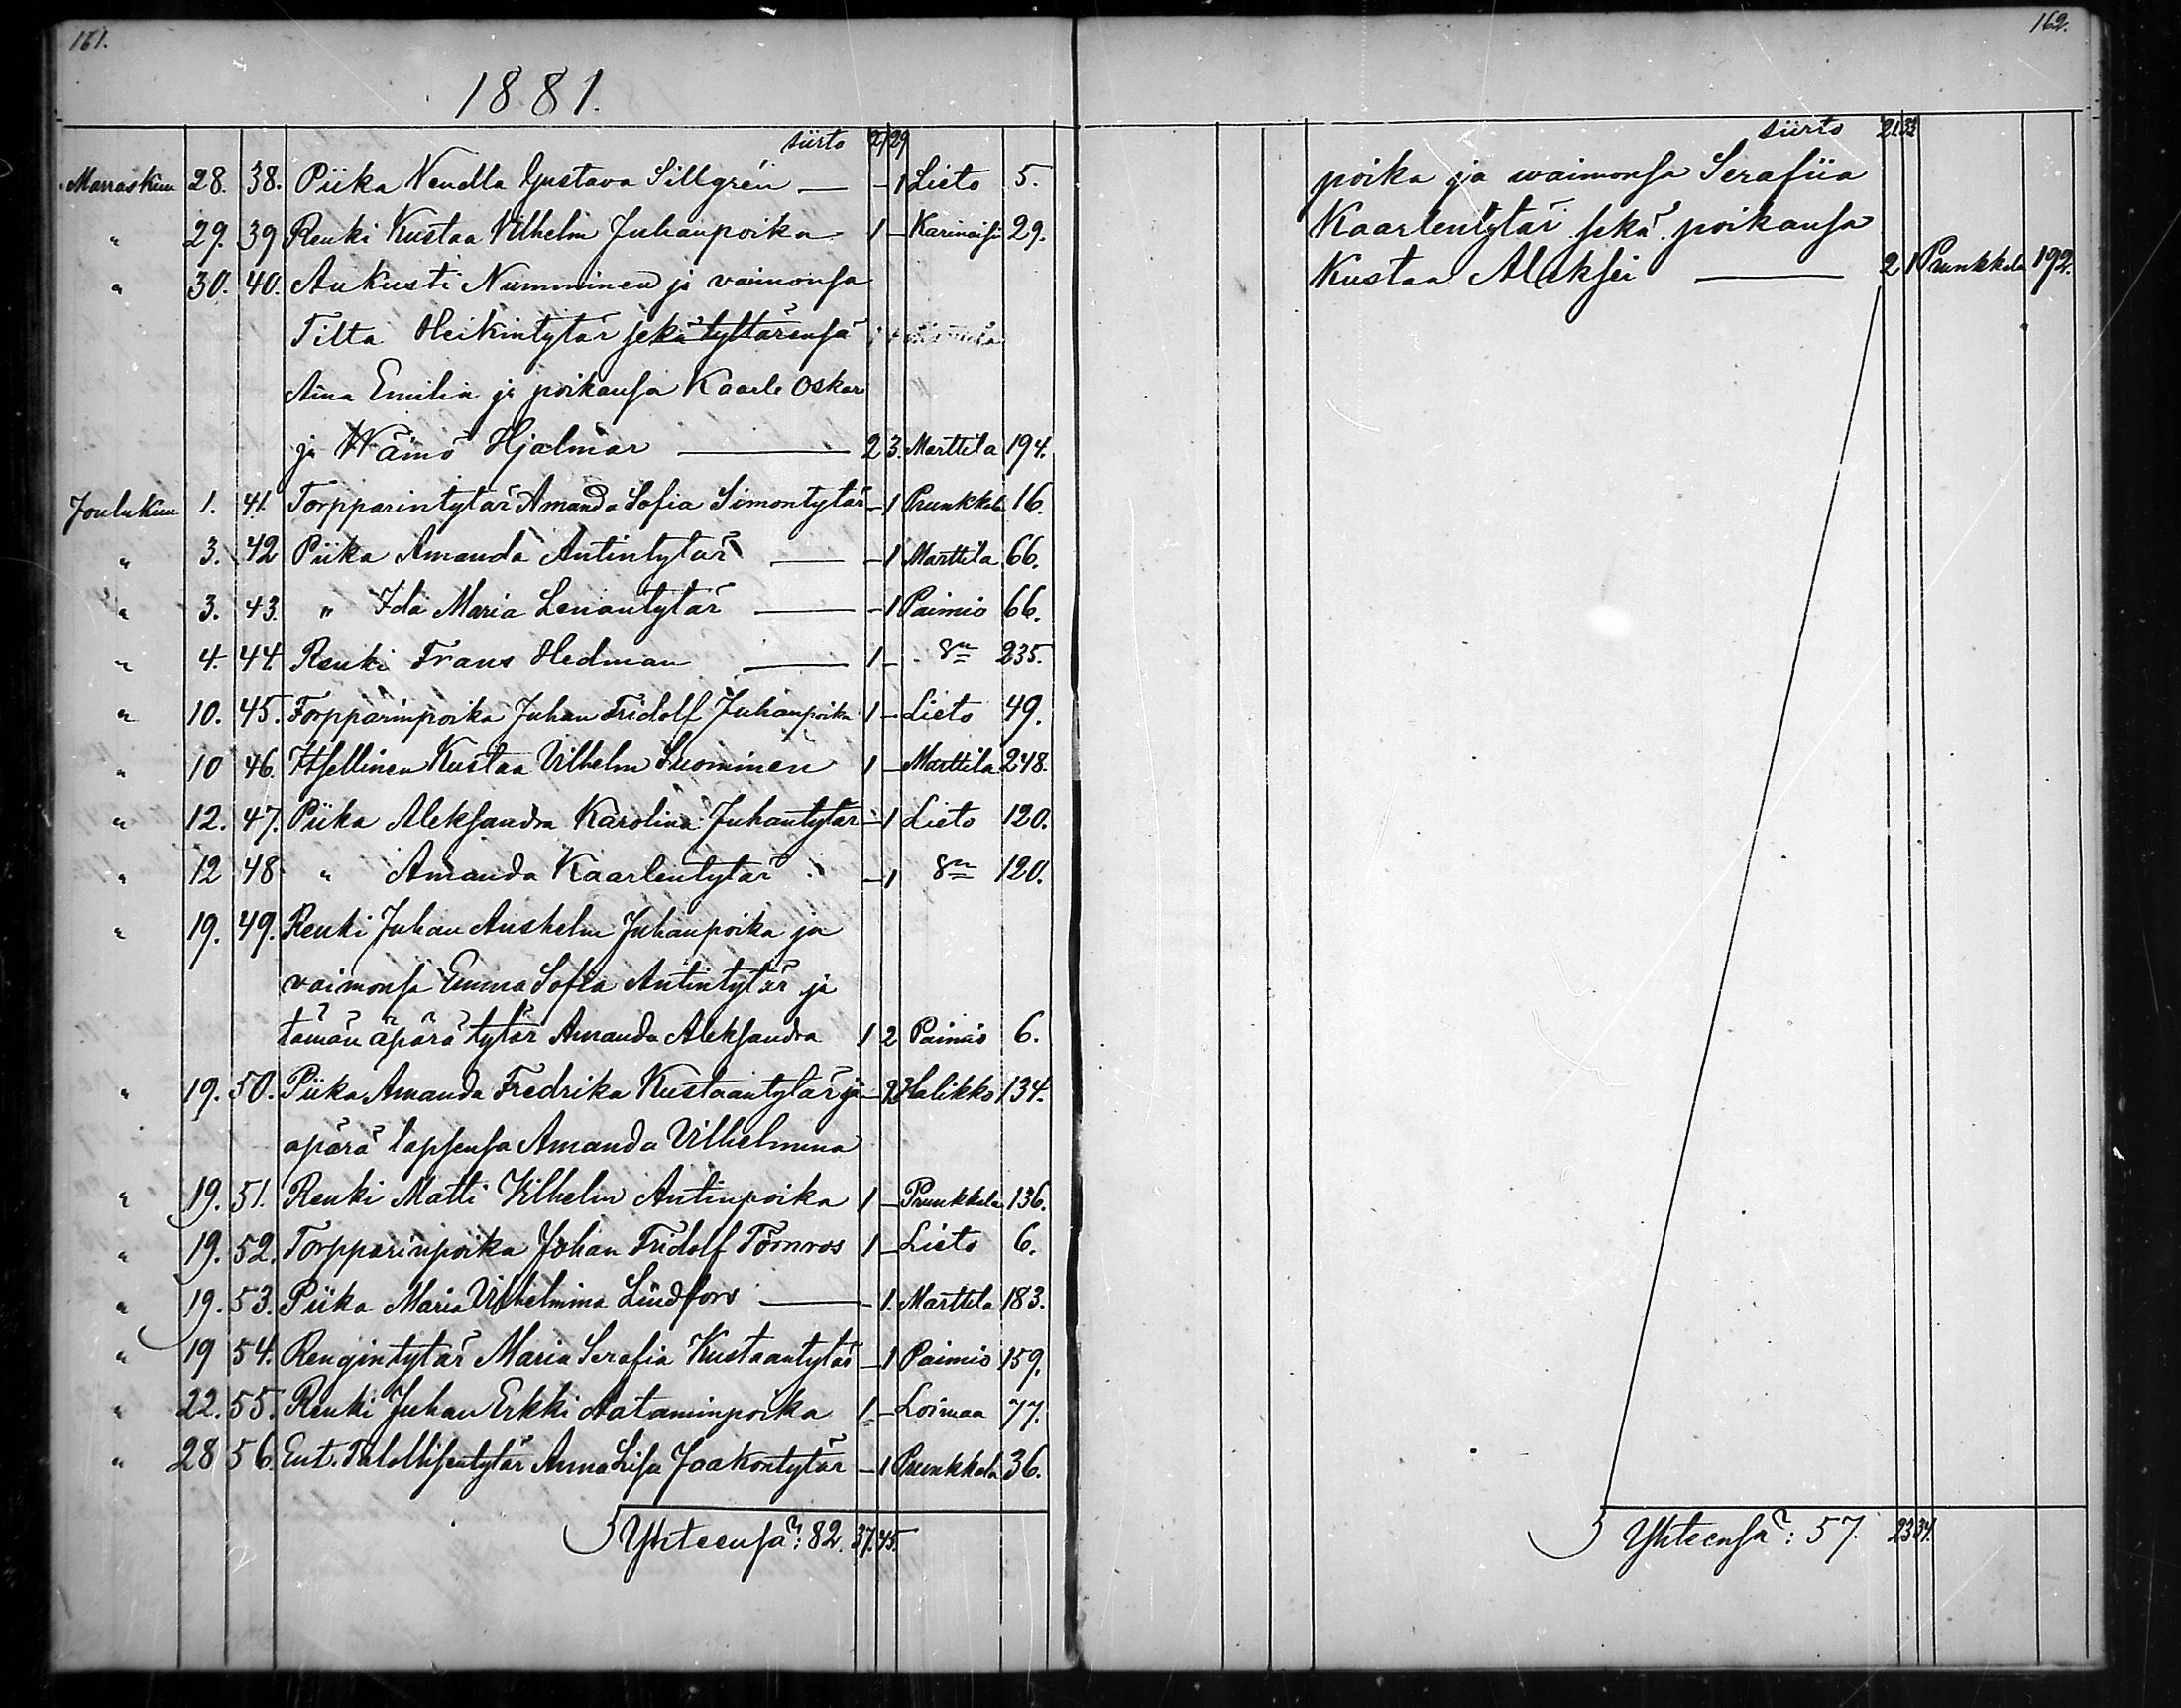 161.
1881.
siirto 27 29
Marraskuu 28. 38. Piika Vendla Gustava Sillgrén — – 1 Lieto 5.
" 29. 39 Renki Kustaa Vilhelm Juhanpoika 1 – Karinaisi 29.
" 30. 40. Aukusti Numminen ja vaimonsa
Tilta Heikintytär sekä tyttärensä
Aina Emilia ja poikansa Kaarle Oskar
ja Wäinö Hjalmar — 2 3. Marttila 194.
Joulukuu 1. 41. Torpparintytär Amanda Sofia Simontytär – 1 Prunkkala 16.
" 3. 42 Piika Amanda Antintytär — – 1 Marttila 66.
" 3. 43. " Ida Maria Lenantytär — – 1 Paimio 66.
" 4. 44. Renki Frans Hedman — 1 – 235.
" 10. 45. Torpparinpoika Juhan Fridolf Juhanpoika 1 – Lieto 49.
" 10 46. Itsellinen Kustaa Vilhelm Suominen 1 – Marttila 248.
" 12. 47. Piika Aleksandra Karolina Juhantytär – 1 Lieto 120.
" 12 48 " Amanda Kaarlentytär – 1 120.
" 19. 49. Renki Juhan Anshelm Juhanpoika ja
vaimonsa Emma Sofia Antintytär ja
tämän äpärä tytär Amanda Aleksandra 1 2 Paimio 6.
" 19. 50. Piika Amanda Fredrika Kustaantytär ja – 2 Halikko 134.
äpärä lapsensa Amanda Vilhelmina
" 19. 51. Renki Matti Vilhelm Antinpoika 1 – Prunkkala 136.
" 19. 52. Torpparinpoika Johan Fridolf Törnros 1 – Lieto 6.
" 19. 53. Piika Maria Vilhelmina Lindfors — – 1. Marttila 183.
" 19 54. Rengintytär Maria Serafia Kustaantytär – 1 Paimio 159.
" 22. 55. Renki Juhan Erkki Aataminpoika 1 – Loimaa 77.
" 28 56. Ent. Talollisentytär Anna Lisa Jaakontytär – 1 Prunkkala 36.
Yhteensä: 82. 37. 45.
162.
siirto 21 33
poika ja waimonsa Serafiia
Kaarlentytär sekä poikansa
Kustaa Aleksei — 2 1 Prunkkala 192.
Yhteensä: 57. 23 34.